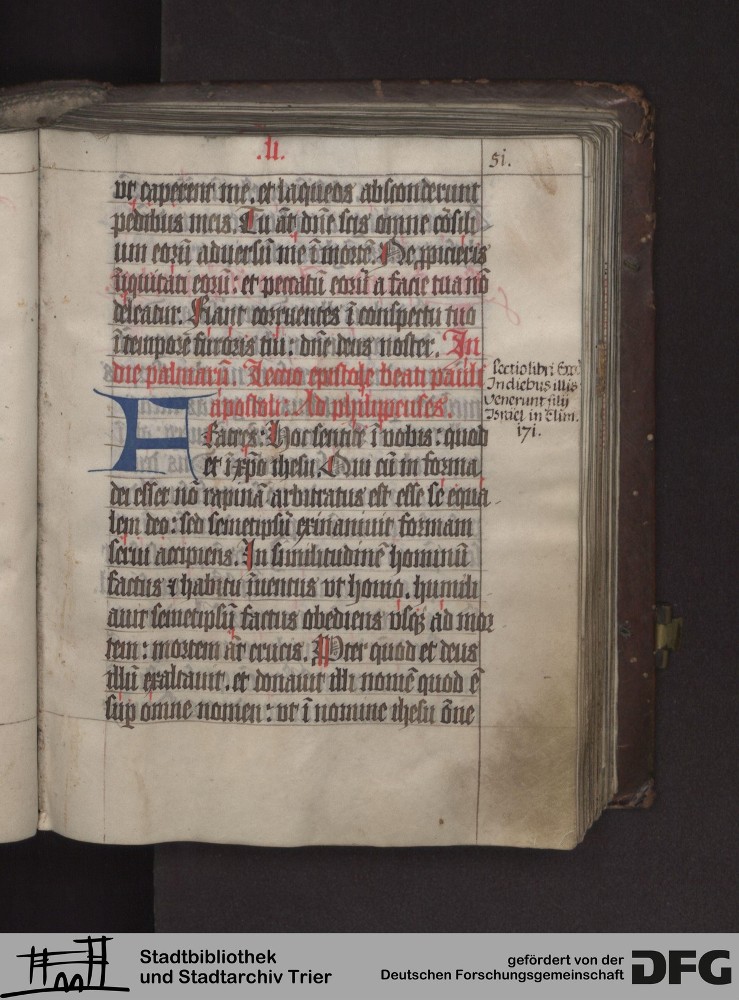 .li.
51.
ut caperent me. et laqueos absconderunt
pedibus meis. Tu āt dn̄e scis omne cōsili
um eorū adversū me ī mortē. Ne ꝓpicieris
īiquitati eorū: et peccatū eorū a facie tua nō
deleatur. Fiant corruentes ī conspectu tuo
ī tempore furoris tui: dn̄e deus noster. In
die palmarū. Lectio epistole beati pauli
apostoli: Ad philippenses.
Fratres: Hoc sentite ī vobis: quod
et ī xp̄o ihesu. Qui cū in forma
dei esset nō rapinā arbitratus est esse se equa
lem deo: sed semetipsū exinanivit formam
servi accipiens. In similitudinē hominū
factus ⁊ habitu īventus ut homo. humili
avit semetipsū factus obediens usqꝫ ad mor
tem: mortem āt crucis. Pter quod et deus
illū exaltavit. et donavit illi nomē quod ē
suꝑ omne nomen: ut ī nomine ihesu ōne
Lectio libri Exo.
In diebus illis
Venerunt filij
Israel in Elim.
171.
Stadtbibliothek
und Stadtarchiv Trier
gefördert von der
Deutschen Forschungsgemeinschaft
DFG